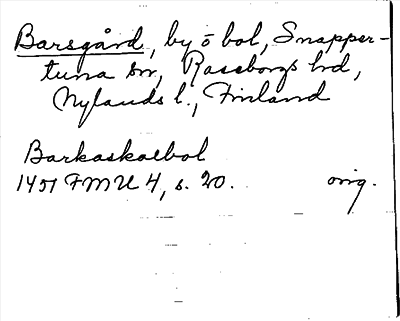 Barsgård, by ō bol, Snapper-
tuna sn, Raseborgs hd,
Nylands l., Finland
Barkaskaebol
1451 FMU 4, s. 20. orig.